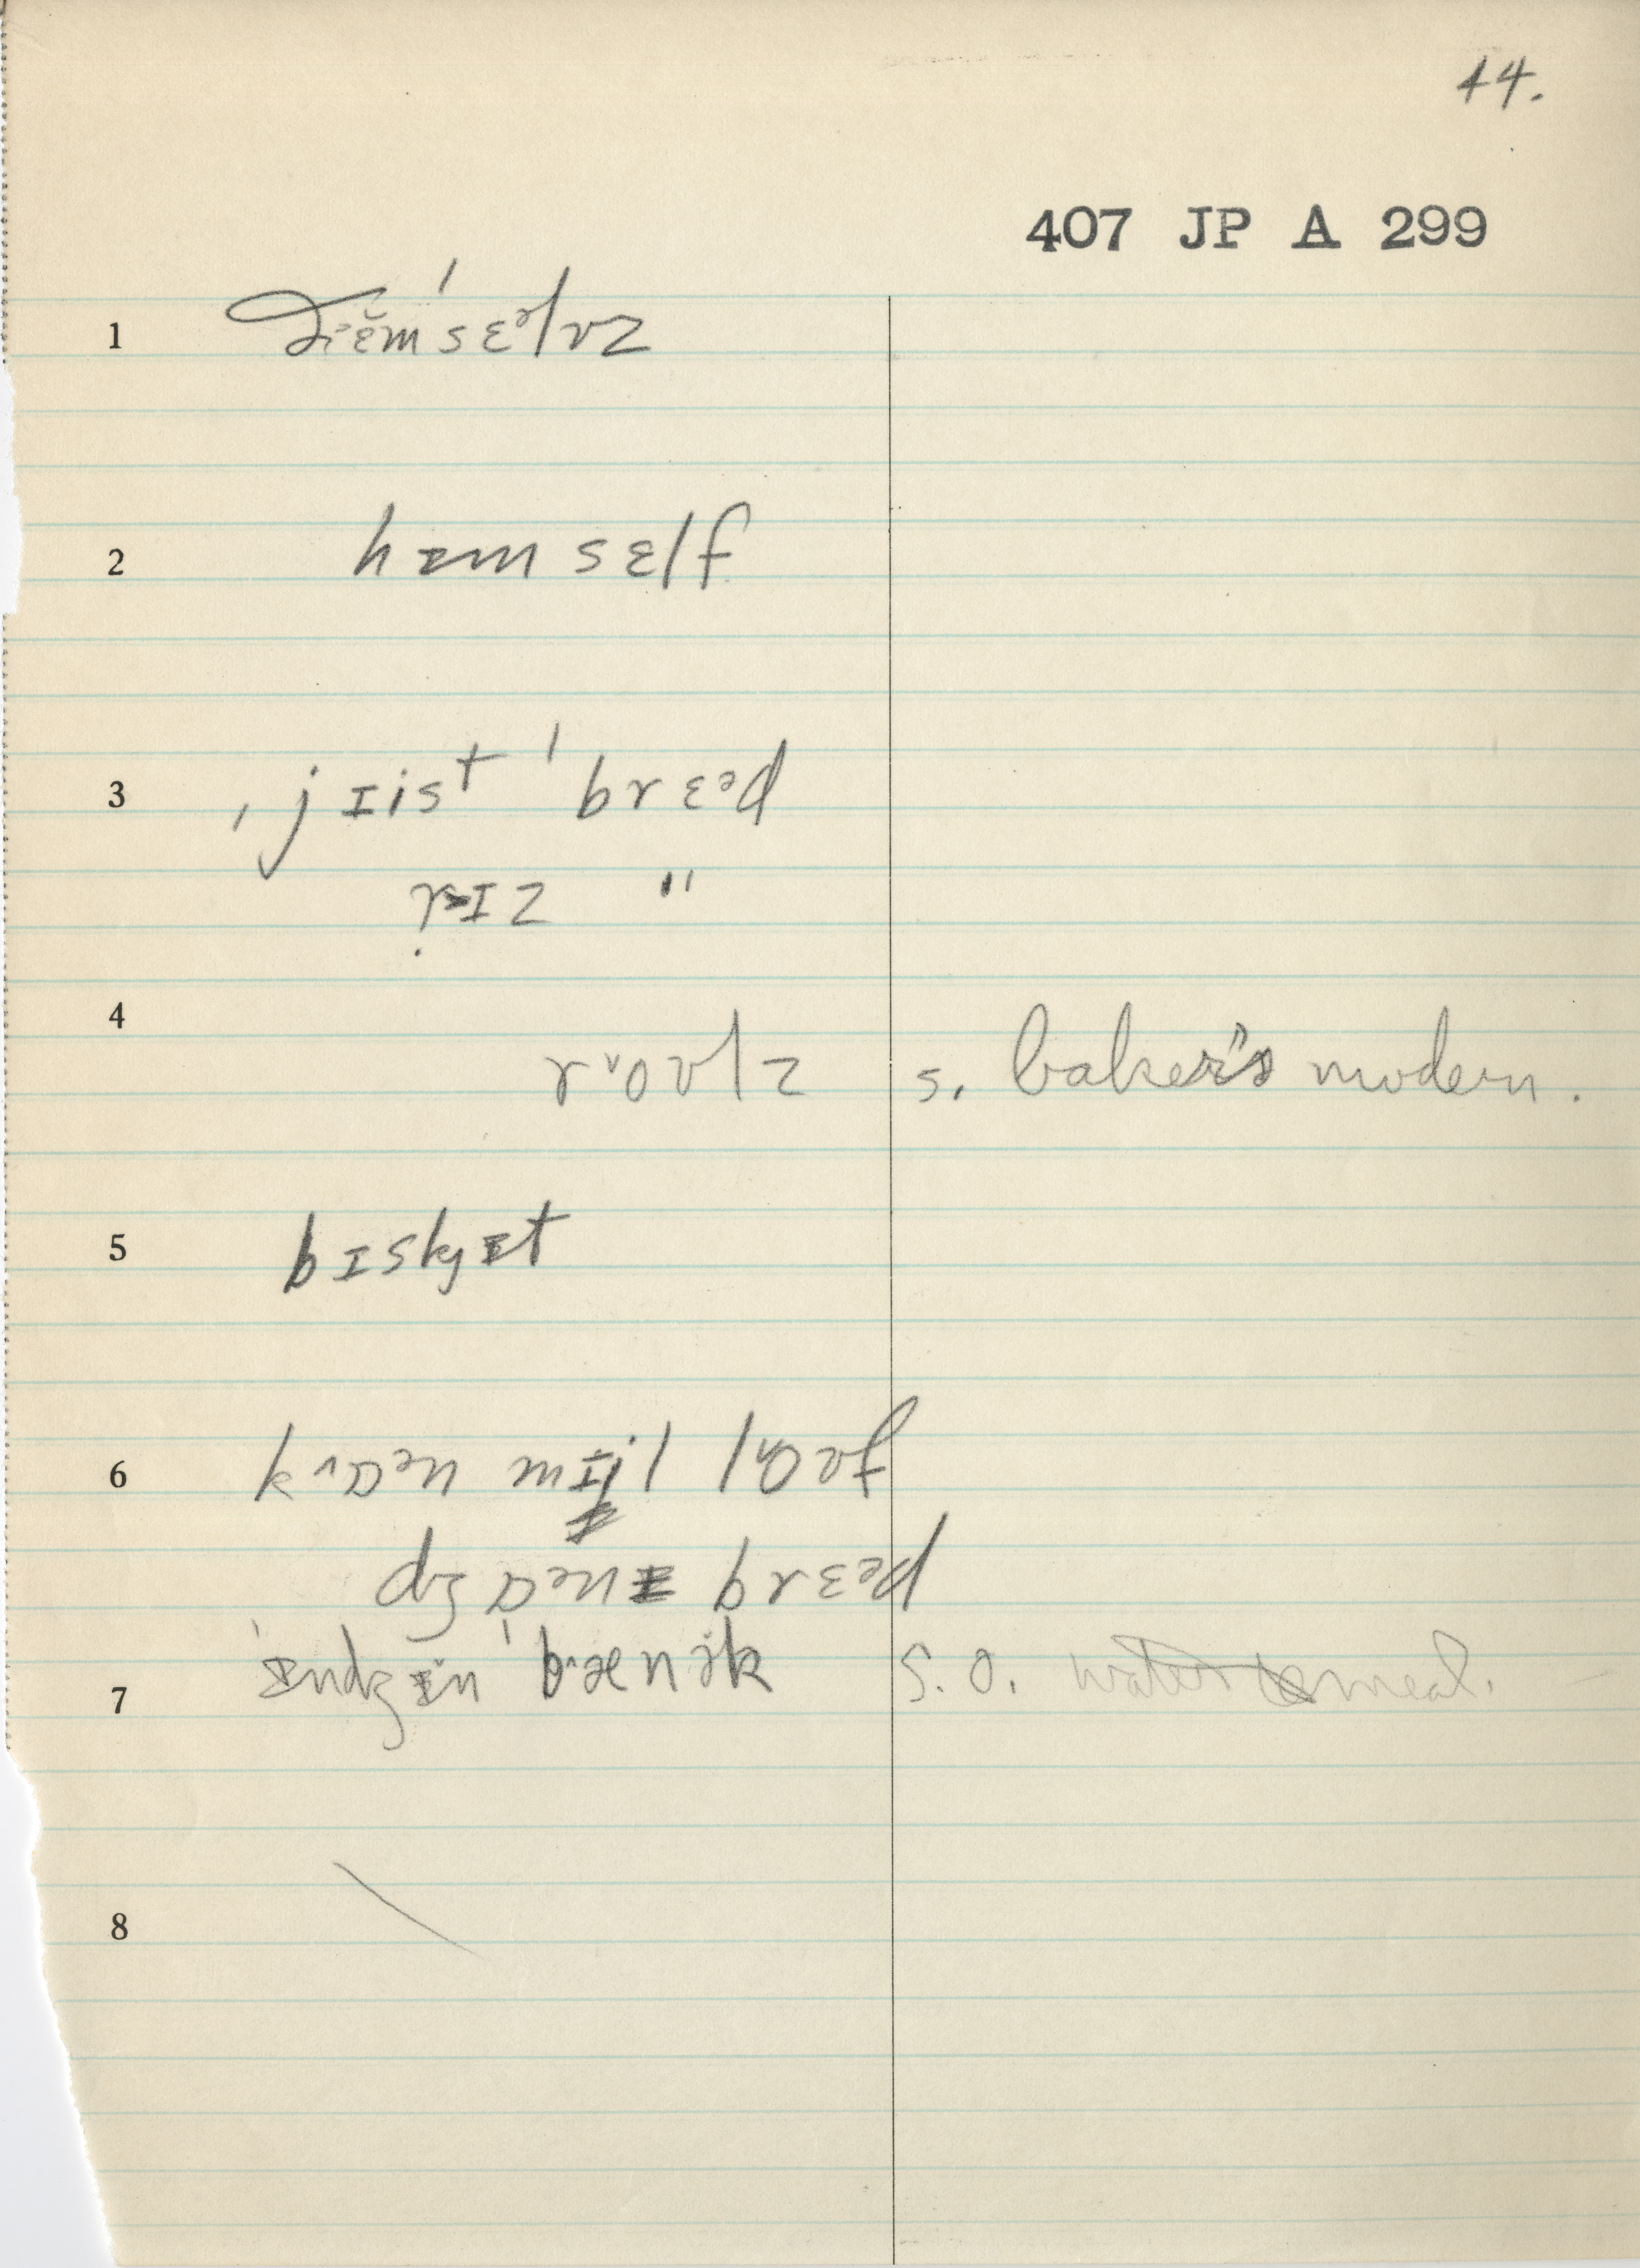 44.
407 JP A 299
1 ðɛ̆m'sɛᵊlvz
2 hɪmsɛlf
3 ˌjɪist 'brɛᵊd
rɪz "
4 rᵛoʊlz s. baker's modern.
5 bɪskɪt
6 k^ɒᵊn mɪil lᵛoʊf
dʒɒᵊnɪ brɛᵊd
7 'ɪndʒɪn 'bænək S. O. water meal.
8